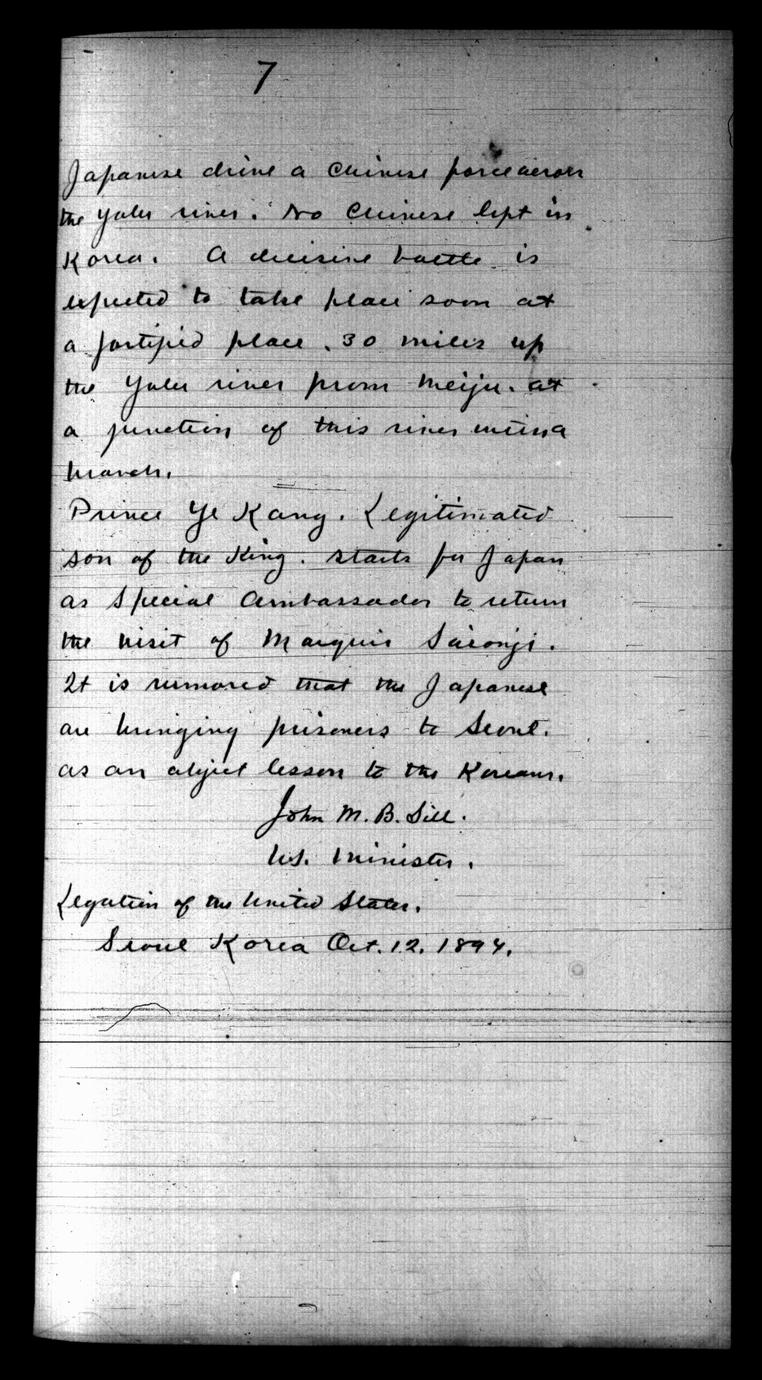 7
Japanese drive a Chinese force across
the Yalu river. No Chinese left in
Korea. A decisive battle is
expected to take place soon at
a fortified place. 30 miles up
the Yalu river from Weiju. at
a junction of this river
Prince Ye Kang. Legitimated
son of the King. starts for Japan
as Special Ambassador to return
the visit of Marquis Saionji.
It is rumored that the Japanese
are bringing prisoners to Seoul.
as an object lesson to the Koreans.
John M. B. Sill.
U.S. Minister.
Legation of the United States.
Seoul Korea Oct. 12. 1894.